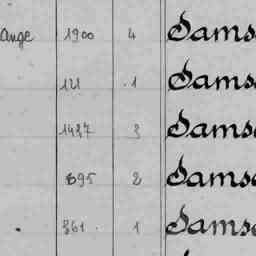 ange 1900 4 Sams
121 1 Sams
1437 3 Sams
895 2 Sams
361 1 Sams